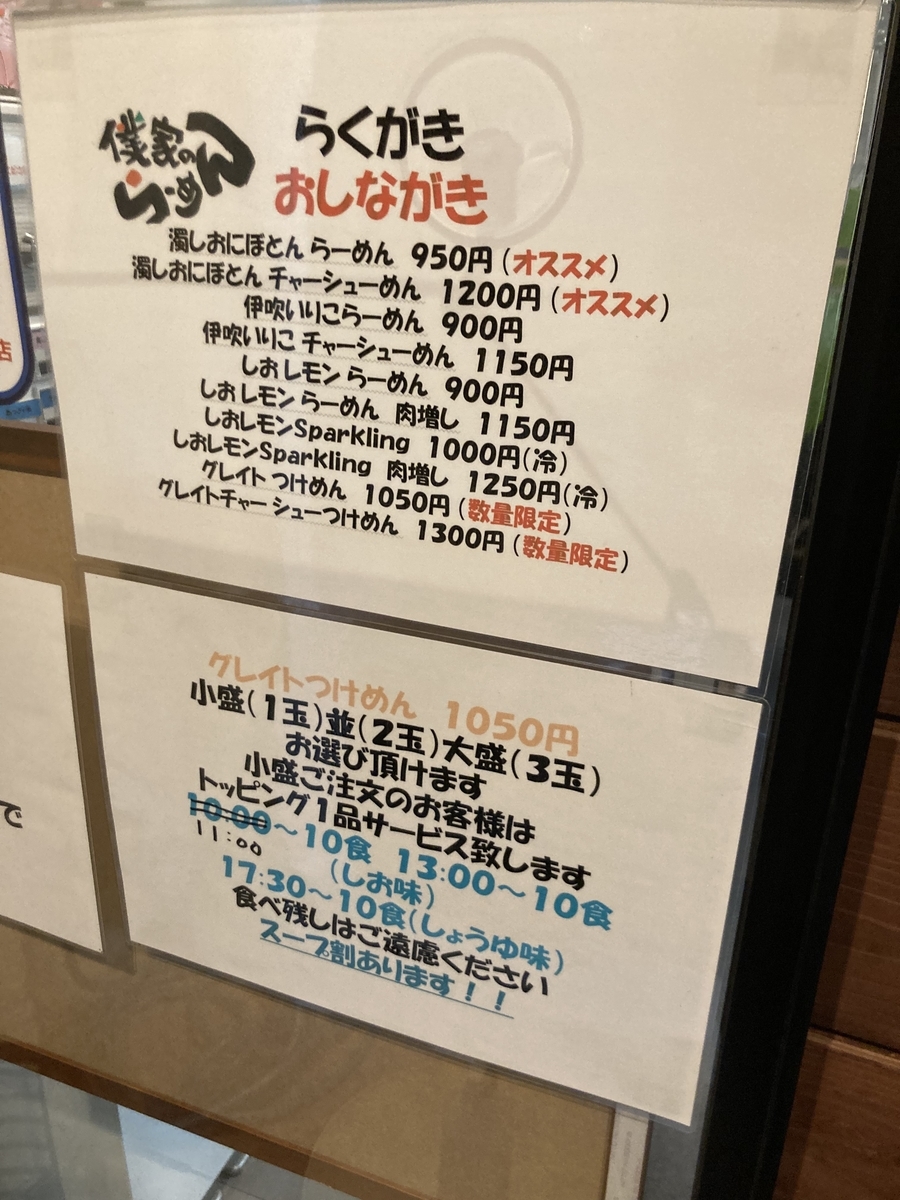 僕家の
らーめん
らくがき
おしながき
濁しおにぼとん らーめん 950円 (オススメ)
濁しおにぼとん チャーシューめん 1200円 (オススメ)
伊吹いりこらーめん 900円
伊吹いりこ チャーシューめん 1150円
しおレモン らーめん 900円
しおレモン らーめん 肉増し 1150円
しおレモンSparkling 1000円(冷)
しおレモンSparkling 肉増し 1250円(冷)
グレイト つけめん 1050円 (数量限定)
グレイトチャー シューつけめん 1300円 (数量限定)
グレイトつけめん 1050円
小盛(1玉)並(2玉)大盛(3玉)
お選び頂けます
小盛ご注文のお客様は
トッピング1品サービス致します
10:00～10食 13:00～10食
11:00
(しお味)
17:30～10食(しょうゆ味)
食べ残しはご遠慮ください
スープ割あります！！
で
店